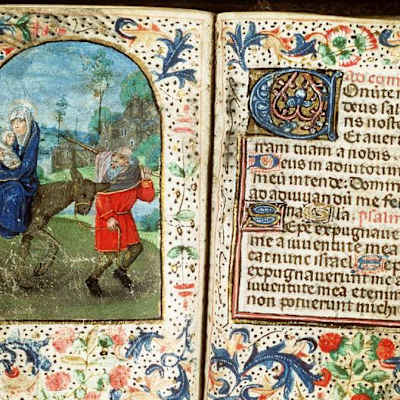 ad com
Conuerte n
deus sal
nost
Et auer
iram tuam a nobis
Deus in adiutoriu
meū intende: Domin
ad adiuuandū me fe
Gla. psalm
Sepe expugnauer
me a iuuentute mea
cat nunc israel Sepe
expugnauerunt me a
iuuentute mea eteni
non potuerunt michi